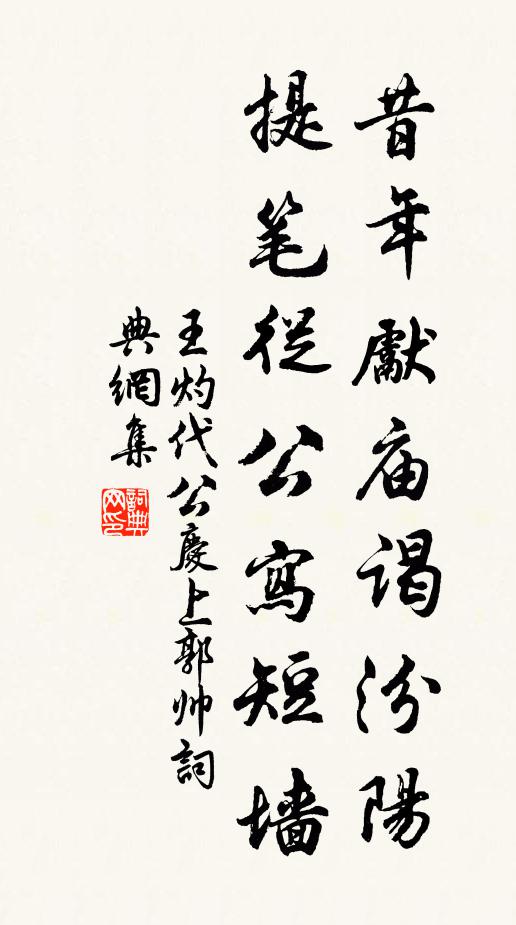 昔年獻庙謁汾陽
提笔從公寫短墙
王灼代公慶上郭帅詞
典網集
詞典网印